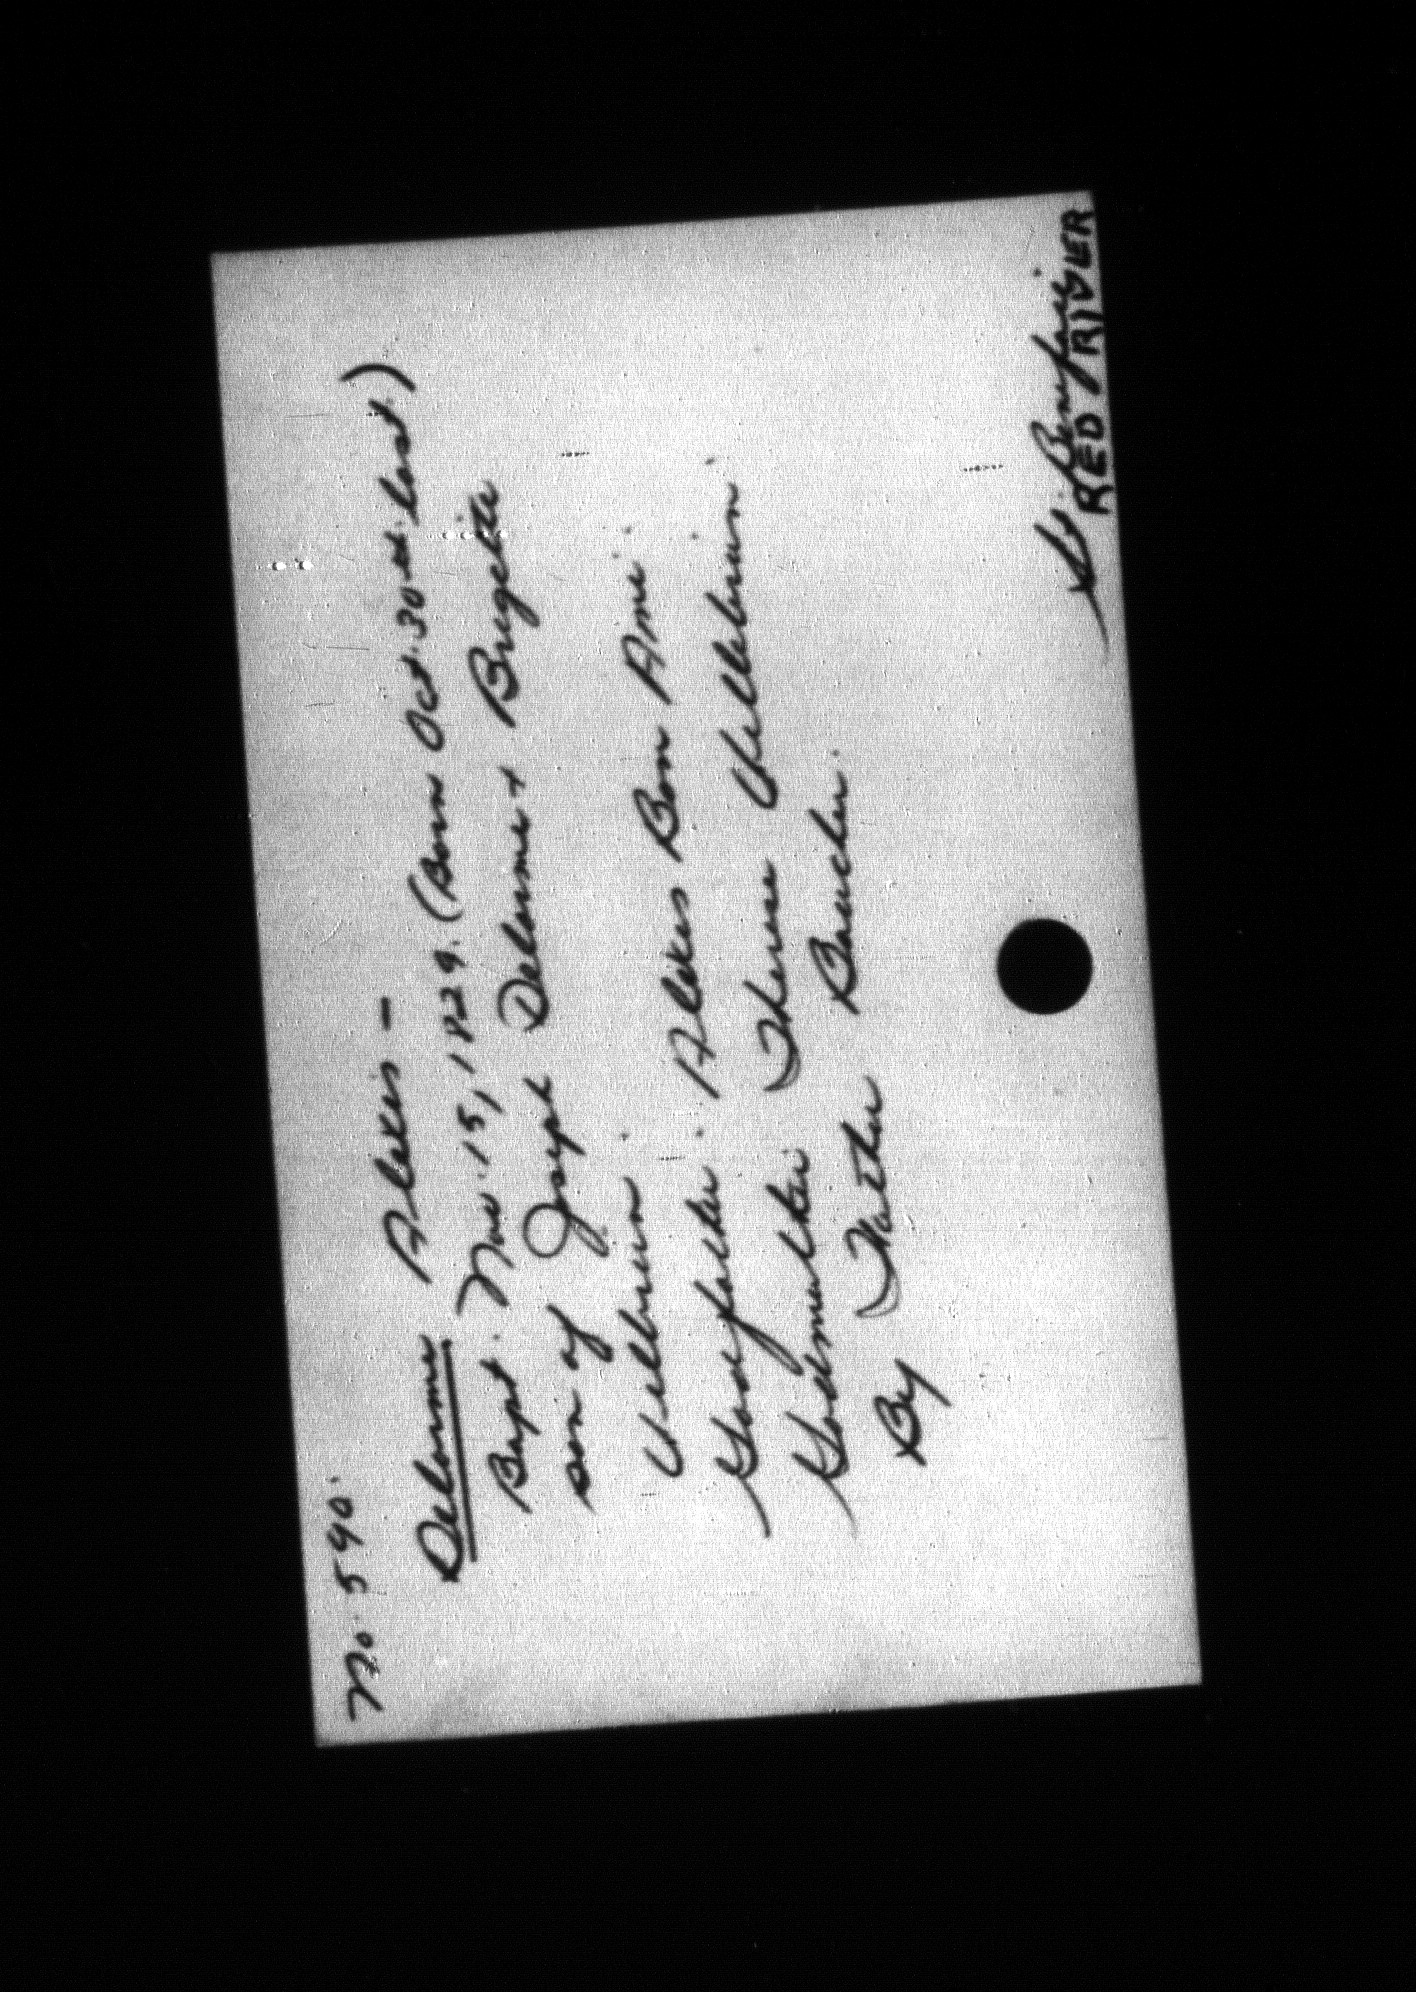 No. 540.
Delorme Alexis —
Bapt. Nov. 15, 1829. (Born Oct. 30th last.)
son of Joseph Delorme + Brigette
Villbrun.
Godfather. Alexis Bon Ami.
Godmother Therese Villebrun
By Father Boucher.
St. Boniface.
RED RIVER